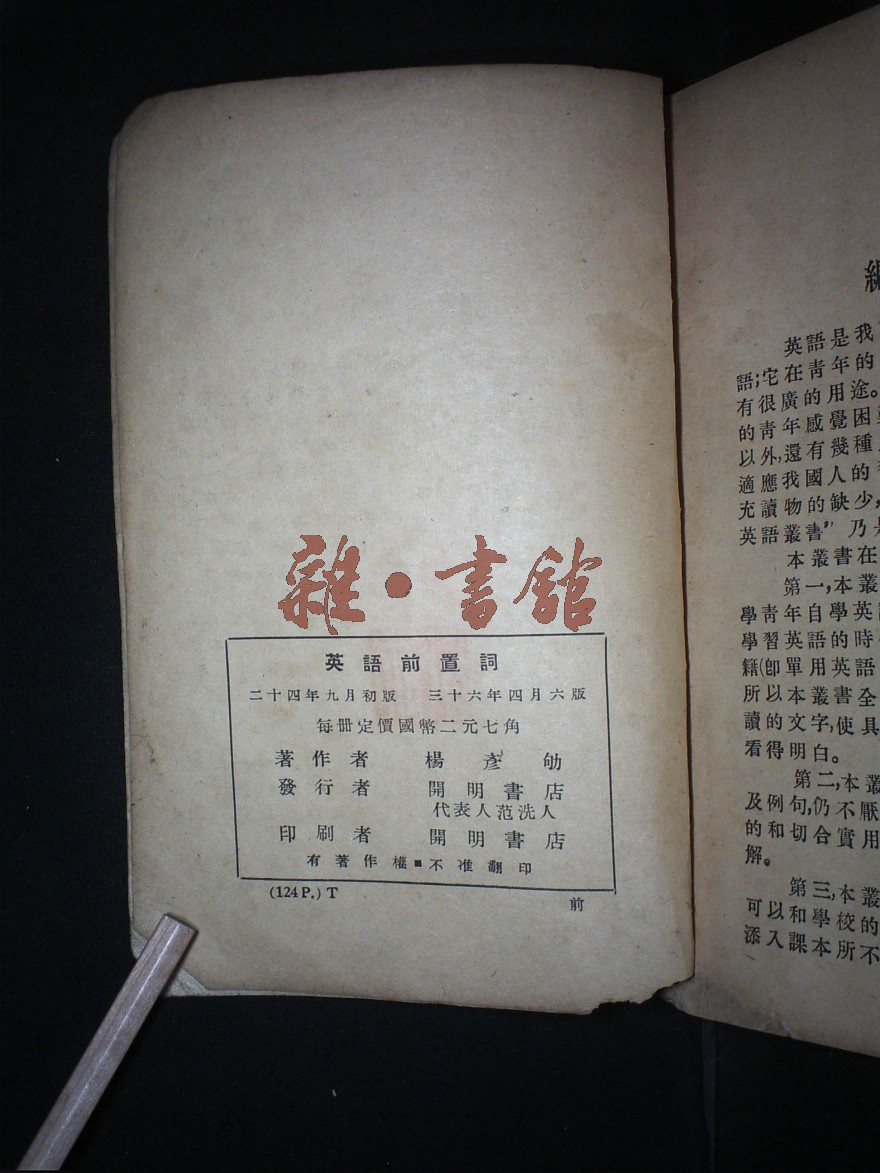 雜·書館
英語前置詞
二十四年九月初版 三十六年四月六版
每册定價國幣二元七角
著作者 楊彥劬
發行者 開明書店
代表人范洗人
印刷者 開明書店
有著作權■不准翻印
(124P.) T 前
編
英語是我
語;宅在青年的
有很廣的用途。
的青年感覺困
以外,還有幾種
適應我國人的
充讀物的缺少,
英語叢書” 乃是
本叢書在
第一,本叢
學青年自學英語
學習英語的時
籍(卽單用英語
所以本叢書全
讀的文字,使具
看得明白。
第二,本叢
及例句,仍不厭
的和切合實用
解。
第三,本叢
可以和學校的
添入課本所不